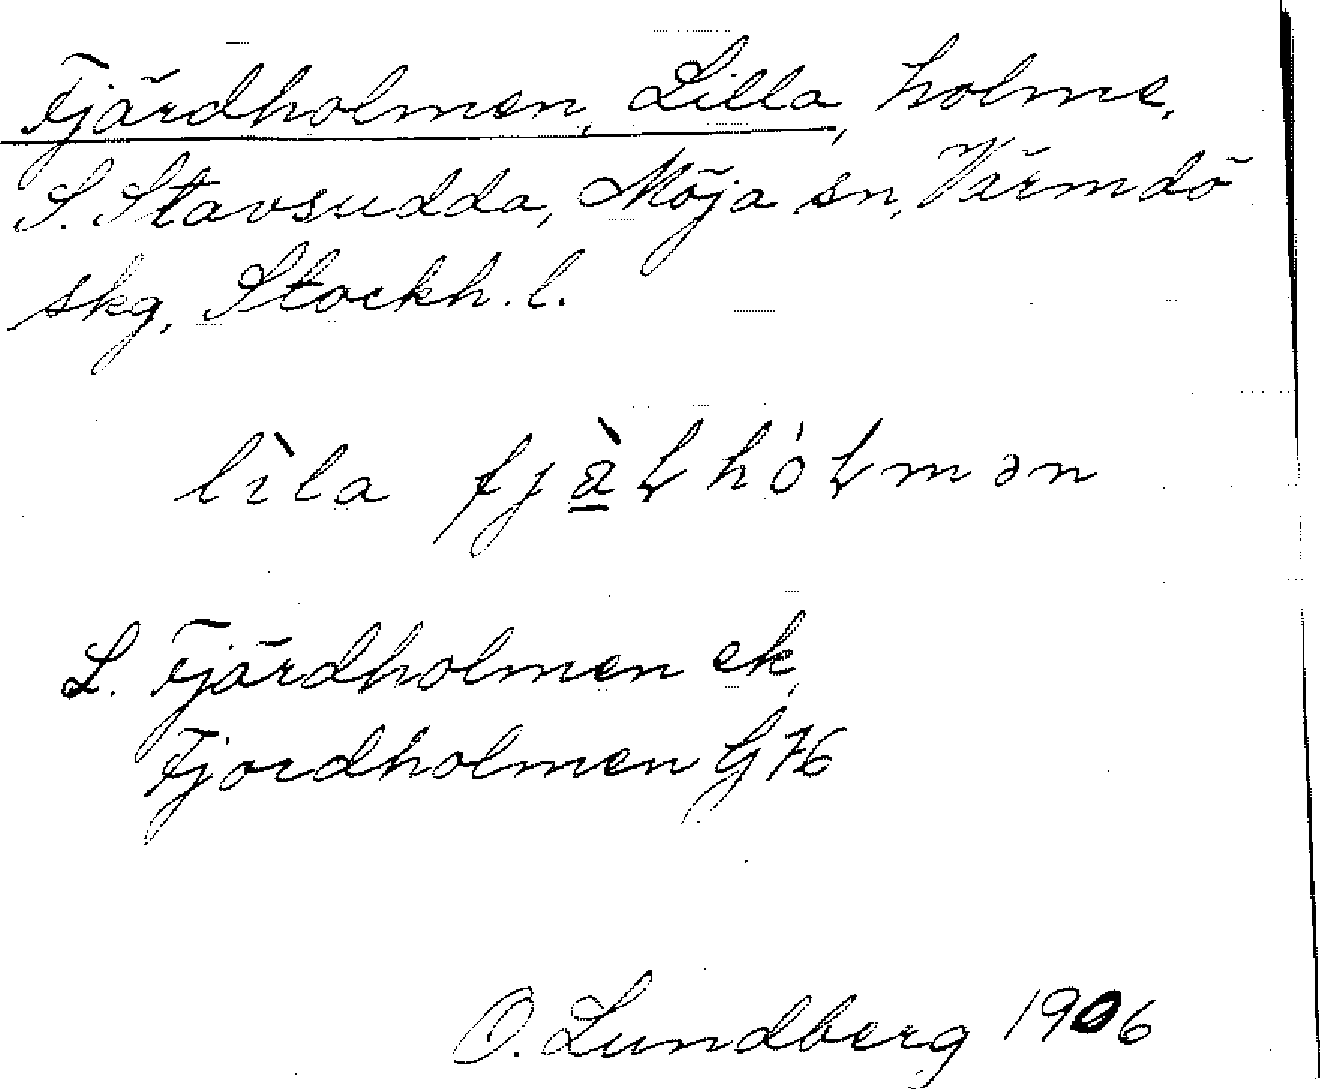 Fjärdholmen, Lilla, holme,
S. Stavsudda, Möja sn, Värmdö
skg, Stockh. l.
lìla fjæ̀ɽhóɽmən
L. Fjärdholmen ek,
Fjordholmen G 76
O. Lundberg 1906